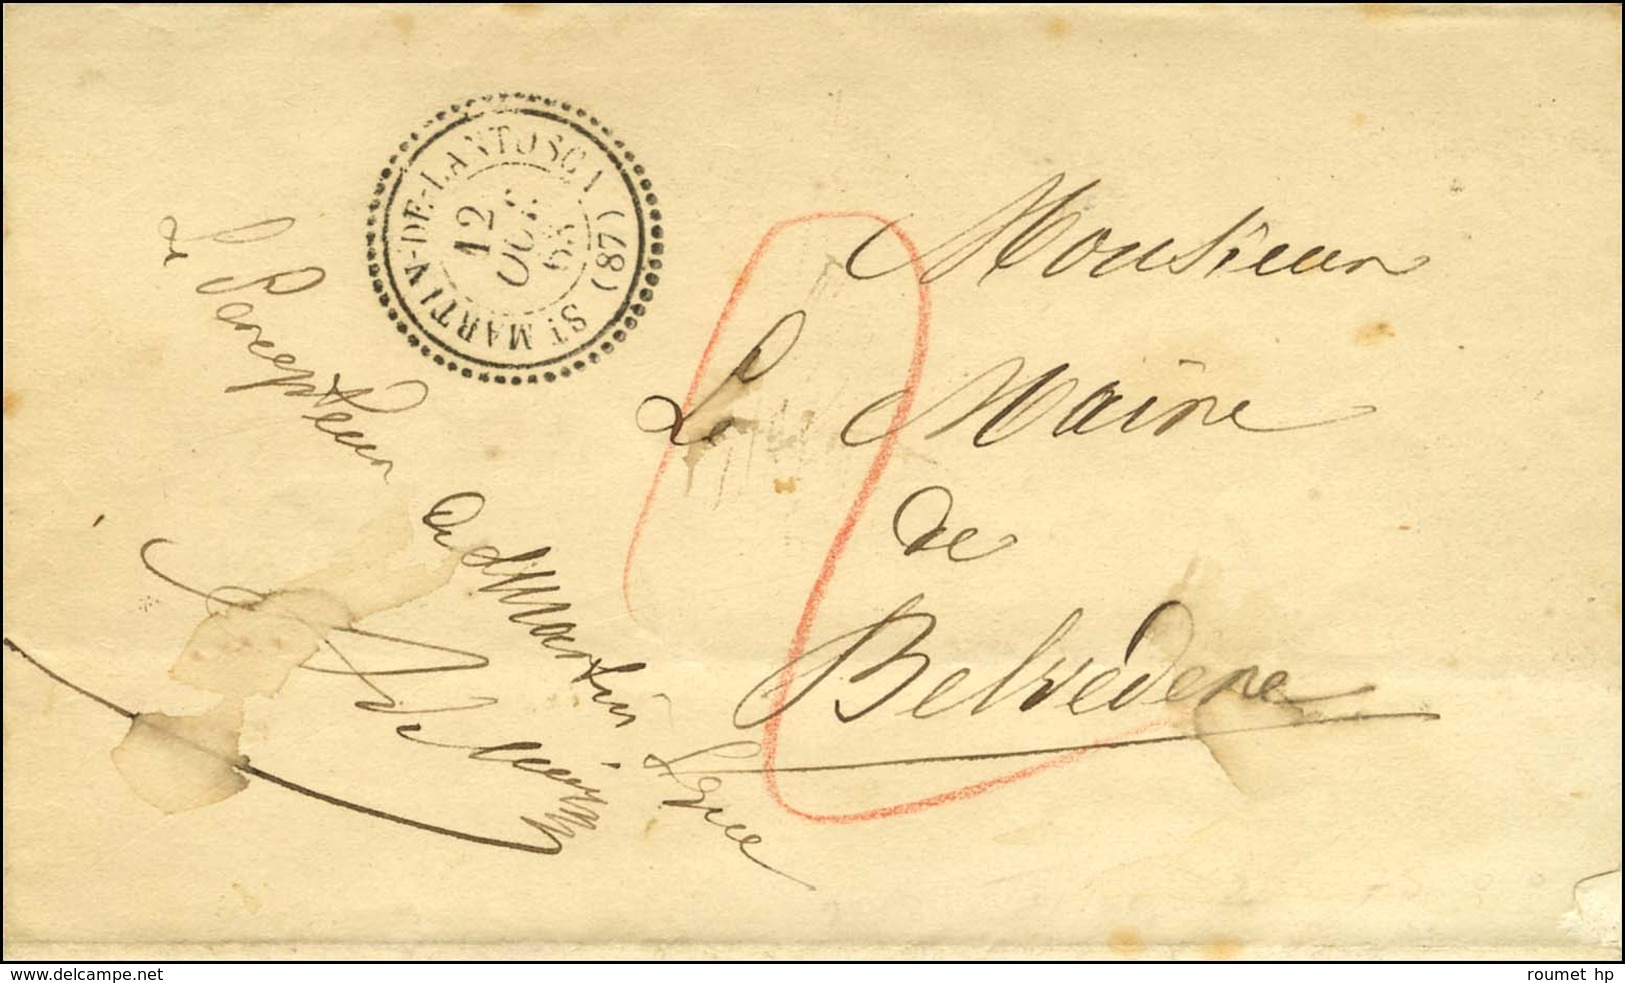 ST MARTIN-DE-LANTOSCA (87)
12
OCT
63
Monsieur
Le Maire
de
Belvédère
Le Percepteur de St Martin
www.delcampe.net
roumet hp